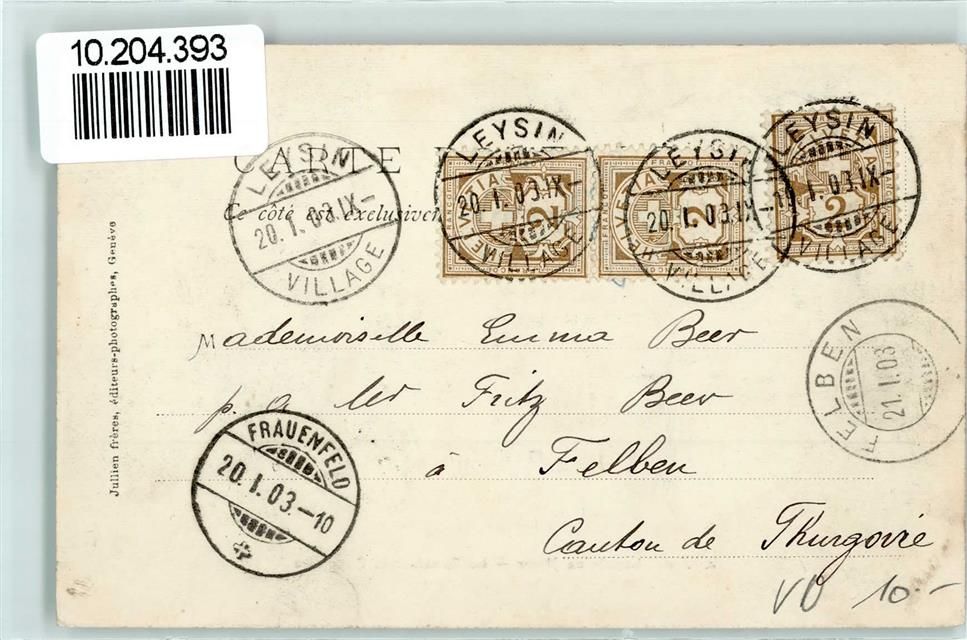 10.204.393
CARTE
Ce côté est exclusivem
LEYSIN
20.I.03.IX-
VILLAGE
LEYSIN
20.I.03.IX-
VILLAGE
LEYSIN
20.I.03.IX-11
VILLAGE
LEYSIN
I.03.IX-
VILLAGE
FRANCO
HELVETIA
2
FRANCO
HELVETIA
2
2
Jullien frères, éditeurs-photographes, Genève
Mademoiselle Emma Beer
p. a Fritz Beer
à Felben
Canton de Thurgovie
FELBEN
21.I.03
FRAUENFELD
20.I.03.-10
10.-